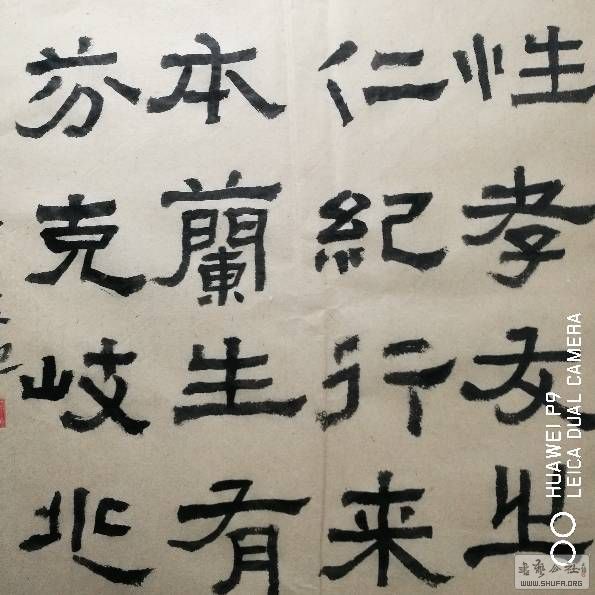 性孝友之
仁紀行来
本蘭生有
芬克岐兆
HUAWEI P9
LEICA DUAL CAMERA
书艺公社
WWW.SHUFA.ORG